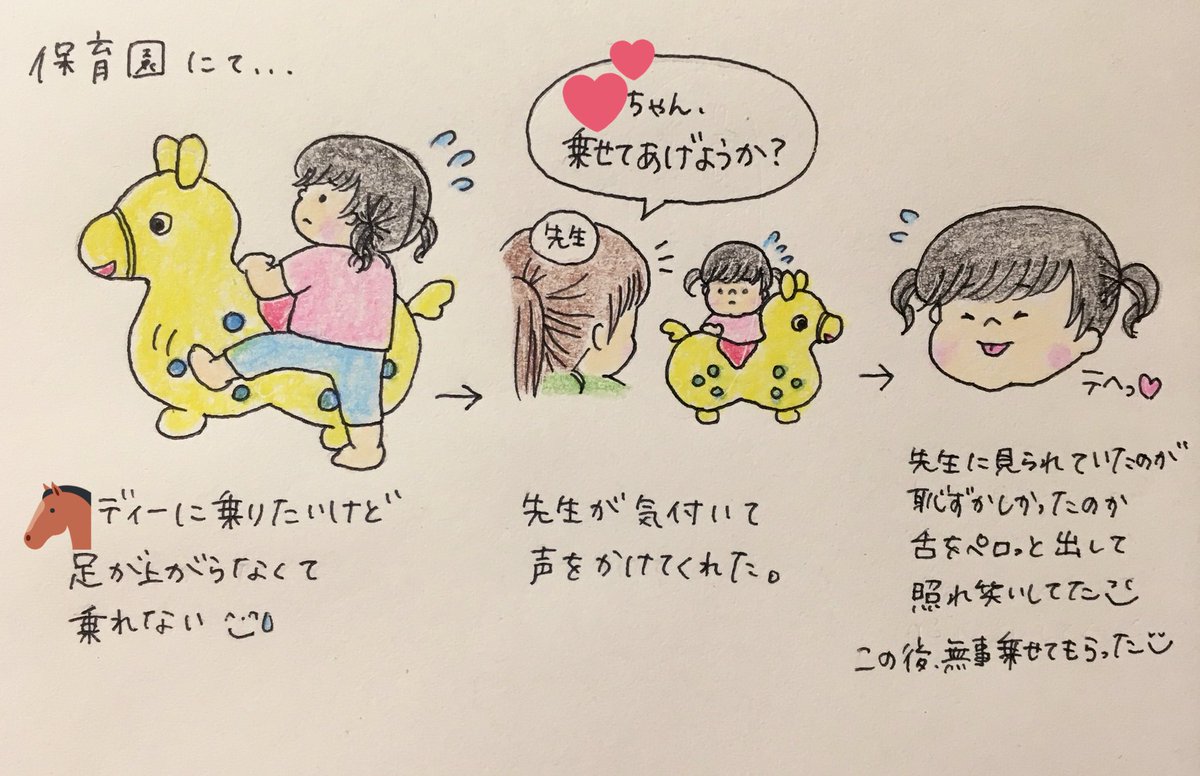 保育園にて...
ちゃん、
乗せてあげようか?
先生
テヘっ
ディーに乗りたいけど
足が上がらなくて
乗れない
先生が気付いて
声をかけてくれた。
先生に見られていたのが
恥ずかしかったのか
舌をペロっと出して
照れ笑いしてた
この後、無事乗せてもらった